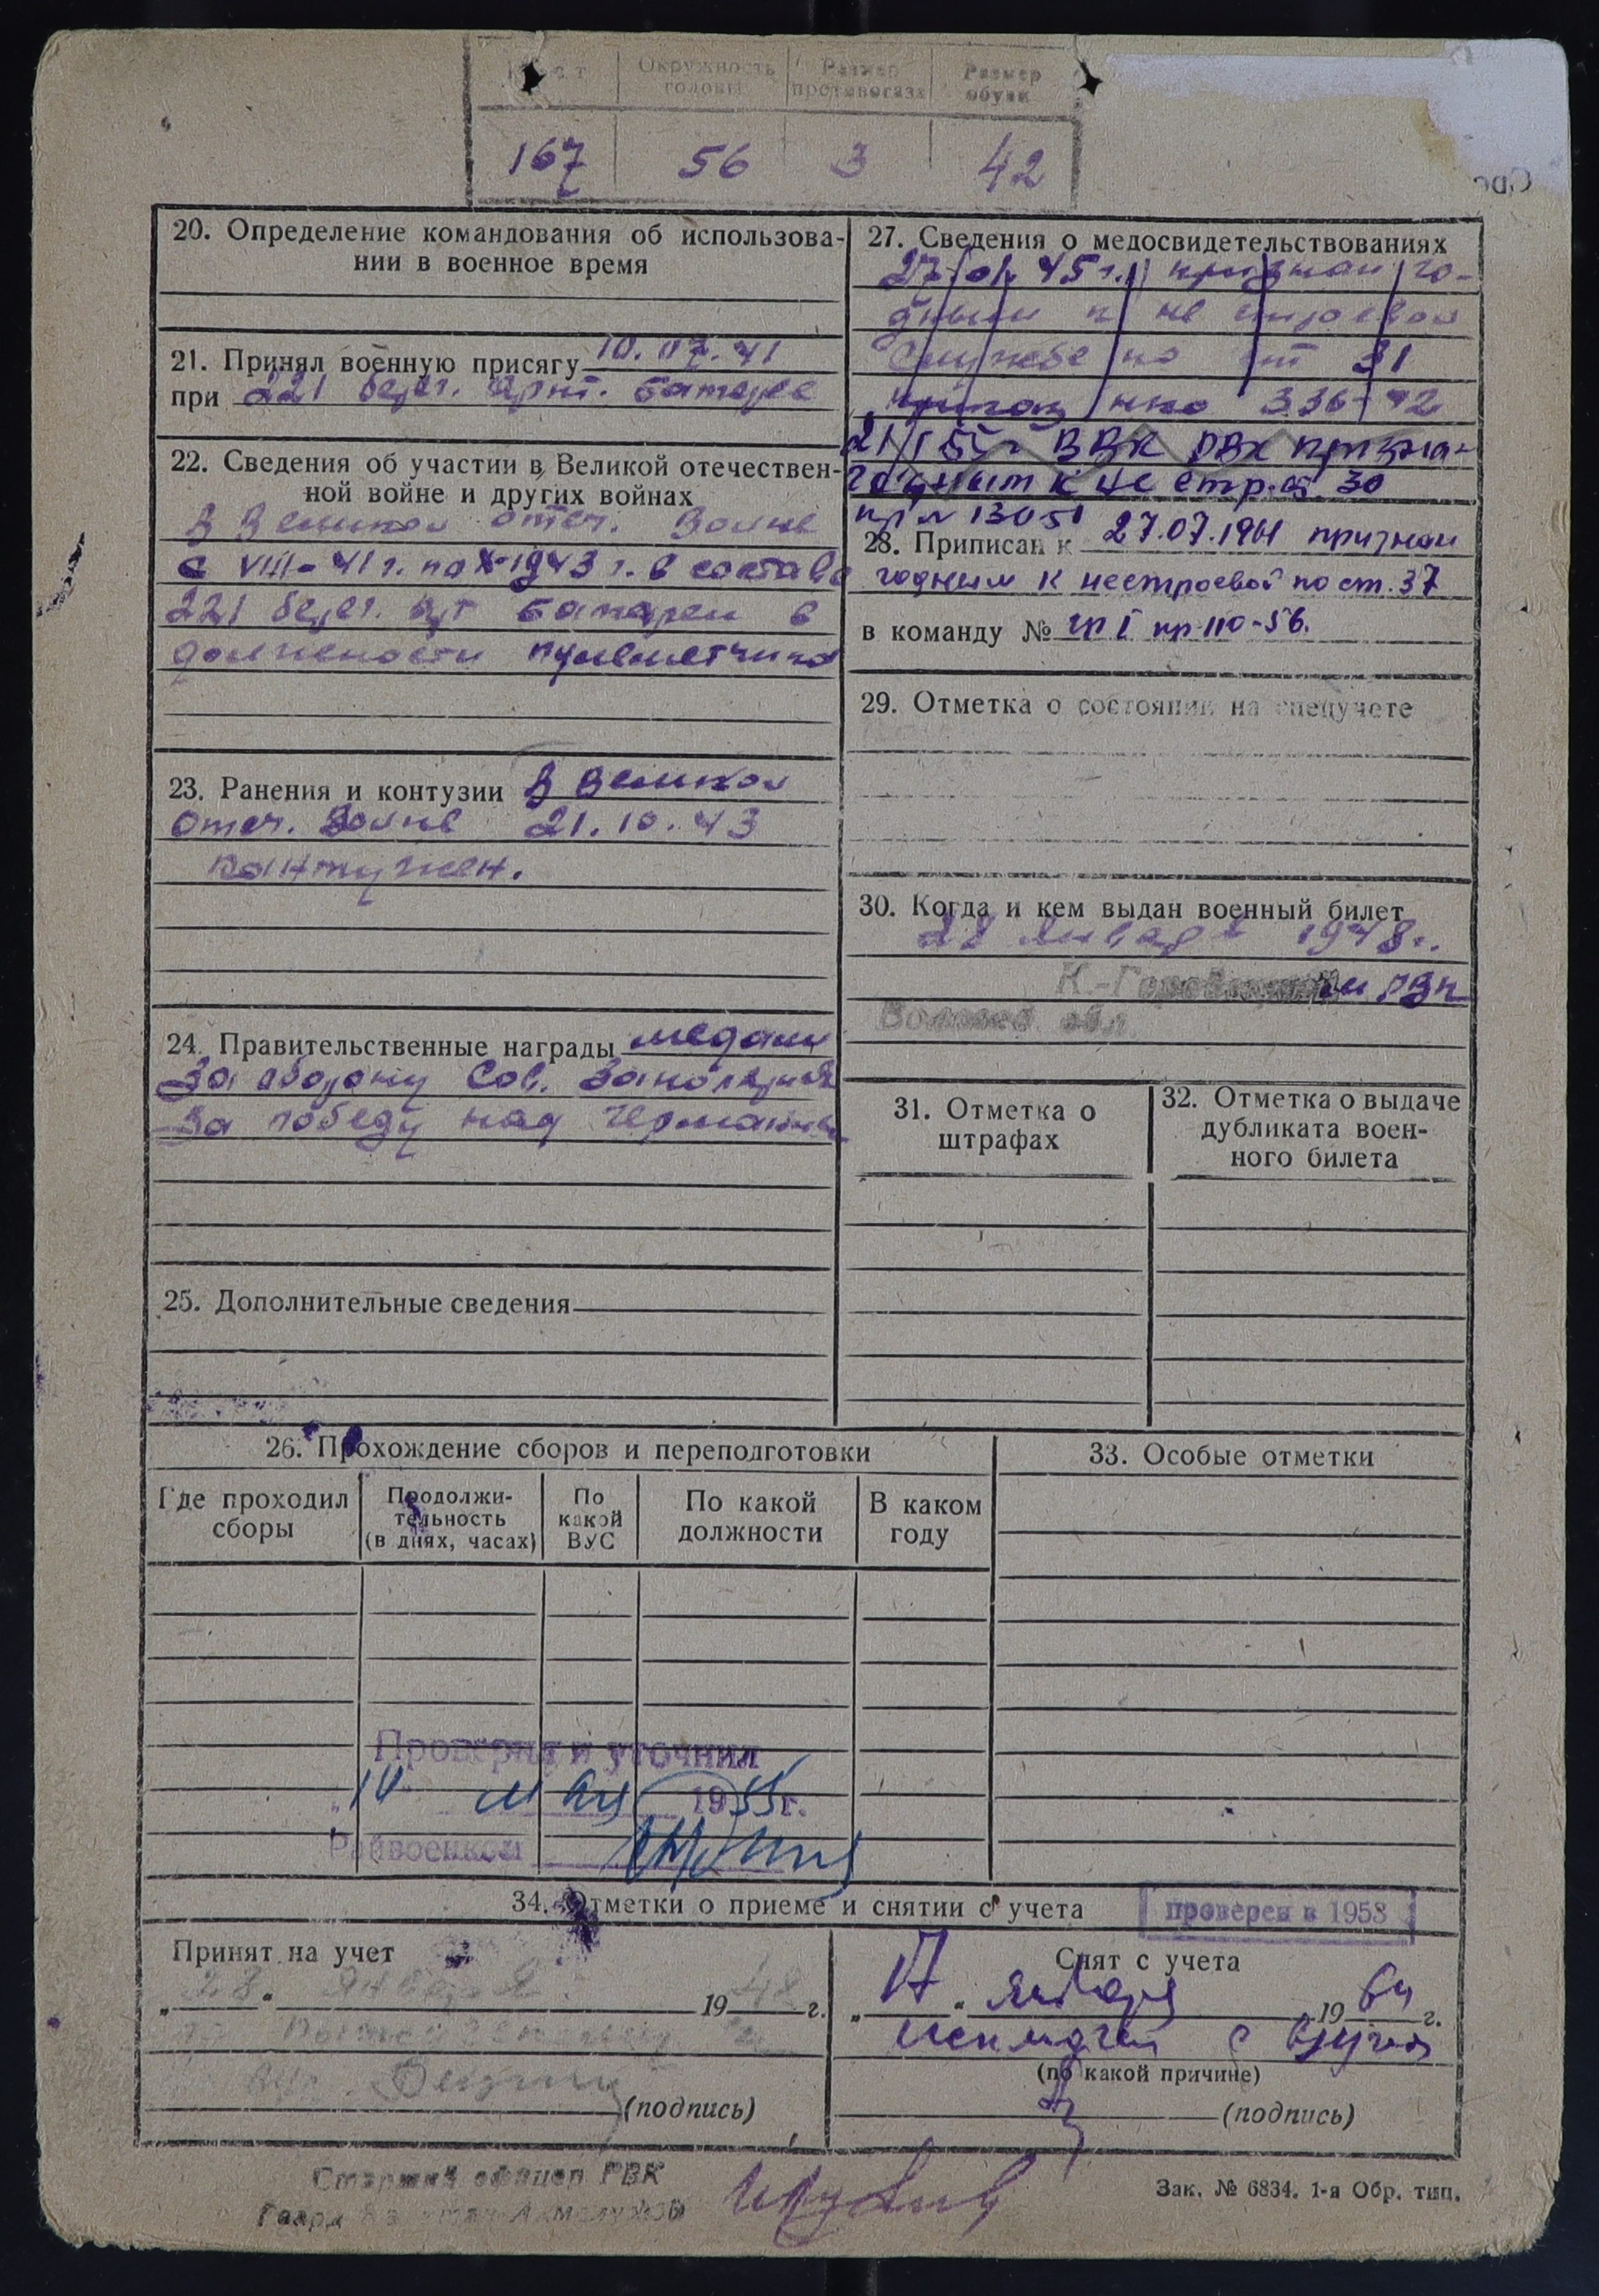 Рост Окружность головы Размер противогаза Размер обуви
167 56 3 42
20. Определение командования об использова-
нии в военное время
21. Принял военную присягу 10.07.41
при 221 берег. арт. батарее
22. Сведения об участии в Великой отечествен-
ной войне и других войнах
В Великой отеч. войне
с VIII-41 г. по X-1943 г. в составе
221 берег. арт батареи в
должности пулеметчика
23. Ранения и контузии В Великой
отеч. войне 21.10.43
контужен.
24. Правительственные награды медали
За оборону Сов. Заполярья
За победу над Германией
25. Дополнительные сведения
26. Прохождение сборов и переподготовки
Где проходил
сборы
Продолжи-
тельность
(в днях, часах)
По
какой
ВУС
По какой
должности
В каком
году
Проверил и уточнил
мая 1955 г.
Райвоенком
27. Сведения о медосвидетельствованиях
45 г. признан го-
дным к не строевой
службе по ст 31
приказ нко 336-42
21/I 55 г ВВК РВК призна-
годным к не стр. ст. 30
пр № 130 51
28. Приписан к 27.07.1961 признан
годным к нестроевой по ст. 37
в команду № гр I пр 110-56.
29. Отметка о состоянии на спецучете
30. Когда и кем выдан военный билет
28 января 1948 г.
РВК
обл
31. Отметка о
штрафах
32. Отметка о выдаче
дубликата воен-
ного билета
33. Особые отметки
34. Отметки о приеме и снятии с учета
проверен в 1958
Принят на учет
„28“ января 1948 г.
(подпись)
Снят с учета
„17“ января 1964 г.
исключен с вучета
(по какой причине)
(подпись)
Старший офицер РВК
Гвард
Зак. № 6834. 1-я Обр. тип.